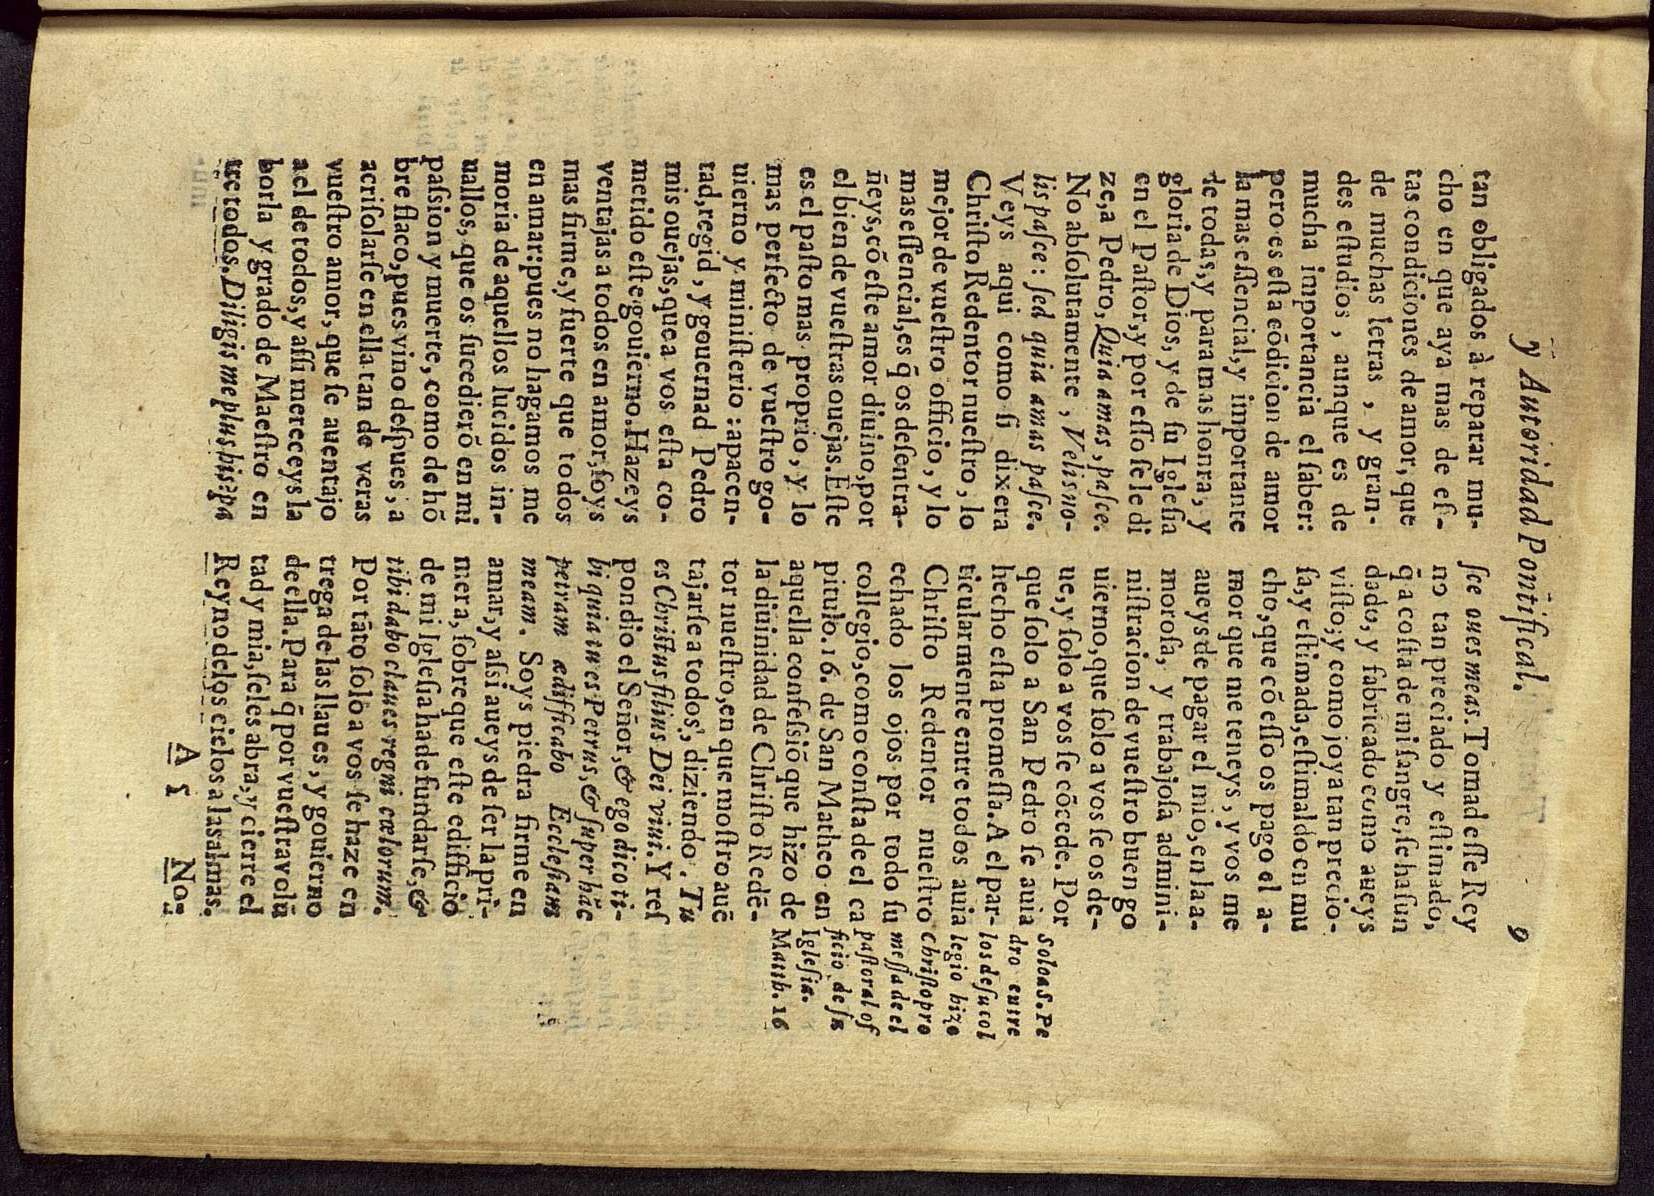 y Autoridad Pontifical. 9
tan obligados à reparar mu-
cho en que aya mas de es-
tas condiciones de amor, que
de muchas letras, y gran-
des eſtudios, aunque es de
mucha importancia el ſaber:
pero es eſta cõdicion de amor
la mas eſſencial, y importante
de todas, y para mas honra, y
gloria de Dios, y de ſu Igleſia
en el Paſtor, y por eſſo ſe le di
ze, a Pedro, Quia amas, paſce.
No abſolutamente, Velis no-
lis paſce: ſed quia amas paſce.
Veys aqui como ſi dixera
Chriſto Redentor nueſtro, lo
mejor de vueſtro officio, y lo
mas eſſencial, es q̃ os deſentra-
ñeys, cõ eſte amor diuino, por
el bien de vueſtras ouejas. Eſte
es el paſto mas proprio, y lo
mas perfecto de vueſtro go-
uierno y miniſterio: apacen-
tad, regid, y gouernad Pedro
mis ouejas, que a vos eſta co-
metido eſte gouierno. Hazeys
ventajas a todos en amor, ſoys
mas firme, y fuerte que todos
en amar: pues no hagamos me
moria de aquellos lucidos in-
uallos, que os ſucedierõ en mi
paſsion y muerte, como de hõ
bre flaco, pues vino deſpues, a
acriſolarſe en ella tan de veras
vueſtro amor, que ſe auentajo
ael de todos, y aſſi mereceys la
borla y grado de Maeſtro en
tre todos. Diligis me plus his? pa
ſce oues meas. Tomad eſſe Rey
no tan preciado y eſtimado,
q̃ a coſta de mi ſangre, ſe ha fun
dado, y fabricado como aueys
viſto; y como joya tan precio-
ſa, y eſtimada, eſtimaldo en mu
cho, que cõ eſſo os pago el a-
mor que me teneys, y vos me
aueys de pagar el mio, en la a-
moroſa, y trabajoſa admini-
niſtracion de vueſtro buen go
uierno, que ſolo a vos ſe os de-
ue, y ſolo a vos ſe cõcede. Por
que ſolo a San Pedro ſe auia
hecho eſta promeſſa. A el par-
ticularmente entre todos auia
Chriſto Redentor nueſtro
echado los ojos por todo ſu
collegio, como conſta de el ca
pitulo. 16. de San Matheo en
aquella confeſsiõ que hizo de
la diuinidad de Chriſto Redẽ-
tor nueſtro, en que moſtro auẽ
tajarſe a todos, diziendo. Tu
es Chriſtus filius Dei viui. Y reſ
pondio el Señor, & ego dico ti-
bi quia tu es Petrus, & ſuper hãc
petram ædifficabo Eccleſiam
meam. Soys piedra firme en
amar, y aſsi aueys de ſer la pri-
mera, ſobre que eſte edifficio
de mi Igleſia ha de fundarſe, &
tibi dabo claues regni cælorum.
Por tãto ſolo a vos ſe haze en
trega de las llaues, y gouierno
de ella. Para q̃ por vueſtra volũ
tad y mia, ſeles abra, y cierre el
Reyno delos cielos a las almas.
Solo a S. Pe
dro entre
los de ſu col
legio hizo
Chriſto pro
meſſa de el
paſtoral of
ficio de ſu
Igleſia.
Matth. 16
A 5 No-